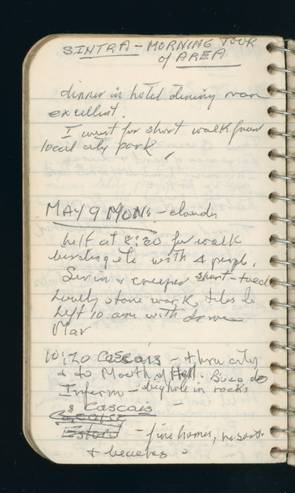 SINTRA - MORNING TOUR
of AREA
dinner in hotel dining room
excellent.
I went for short walk from
local city park
MAY 9 MON. - clouds
left at 8:20 for walk
with 4 people.
creeper short-toed
stone work, tiles
Left 10 am with
Mar
10:20 Cascais - thru city
& to Mouth of Hell. Boca do
Inferno - big hole in rocks
& Cascais
Estoril - fine homes, resorts
& beaches